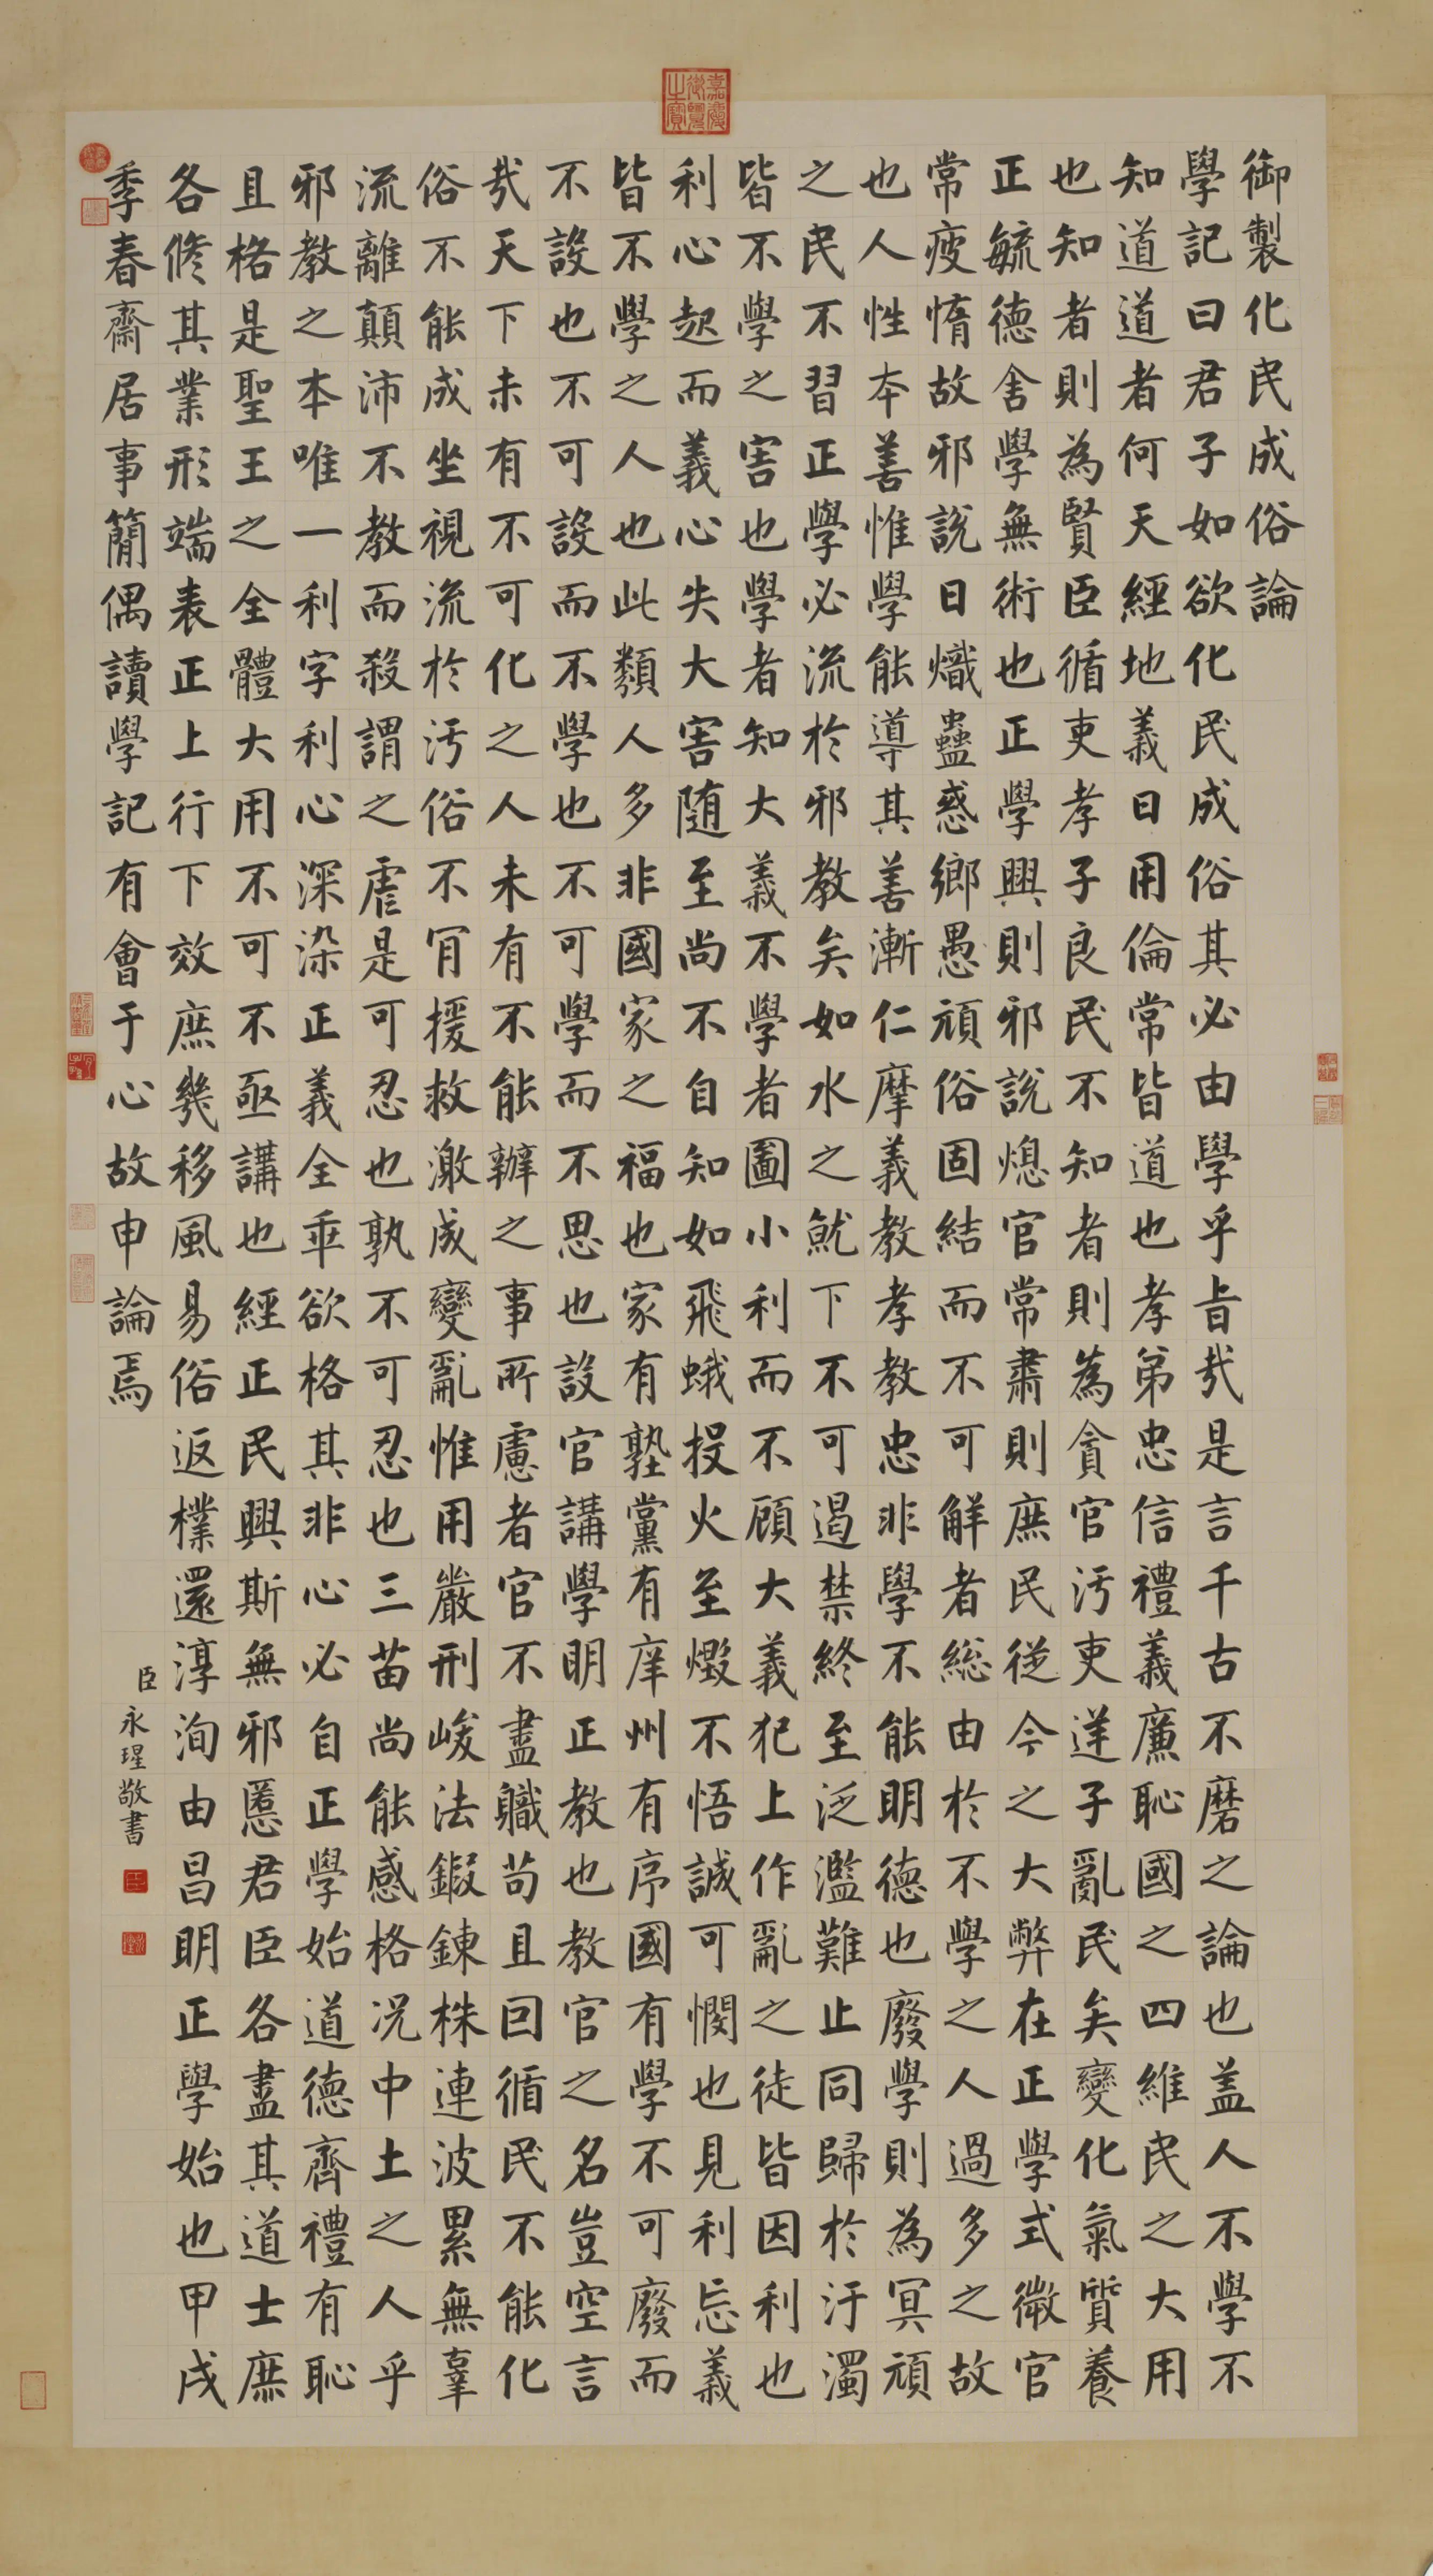 御製化民成俗論
學記曰君子如欲化民成俗其必由學乎旨哉是言千古不磨之論也蓋人不學不
知道道者何天經地義日用倫常皆道也孝弟忠信禮義廉恥國之四維民之大用
也知者則為賢臣循吏孝子良民不知者則為貪官污吏逆子亂民矣變化氣質養
正毓德舍學無術也正學興則邪說熄官常肅則庶民從今之大弊在正學式微官
常疲惰故邪說日熾蠱惑鄉愚頑俗固結而不可解者總由於不學之人過多之故
也人性本善惟學能導其善漸仁摩義教孝教忠非學不能明德也廢學則為冥頑
之民不習正學必流於邪教矣如水之就下不可遏禁終至泛濫難止同歸於汙濁
皆不學之害也學者知大義不學者圖小利而不顧大義犯上作亂之徒皆因利也
利心起而義心失大害隨至尚不自知如飛蛾投火至燬不悟誠可憫也見利忘義
皆不學之人也此類人多非國家之福也家有塾黨有庠州有序國有學不可廢而
不設也不可設而不學也不可學而不思也設官講學明正教也教官之名豈空言
哉天下未有不可化之人未有不能辦之事所慮者官不盡職苟且因循民不能化
俗不能成坐視流於污俗不肯援救激成變亂惟用嚴刑峻法鍜鍊株連波累無辜
流離顛沛不教而殺謂之虐是可忍也孰不可忍也三苗尚能感格況中土之人乎
邪教之本唯一利字利心深染正義全乖欲格其非心必自正學始道德齊禮有恥
且格是聖王之全體大用不可不亟講也經正民興斯無邪慝君臣各盡其道士庶
各修其業形端表正上行下效庶幾移風易俗返樸還淳洵由昌明正學始也甲戌
季春齋居事簡偶讀學記有會于心故申論焉
臣永瑆敬書
嘉慶御覽之寶